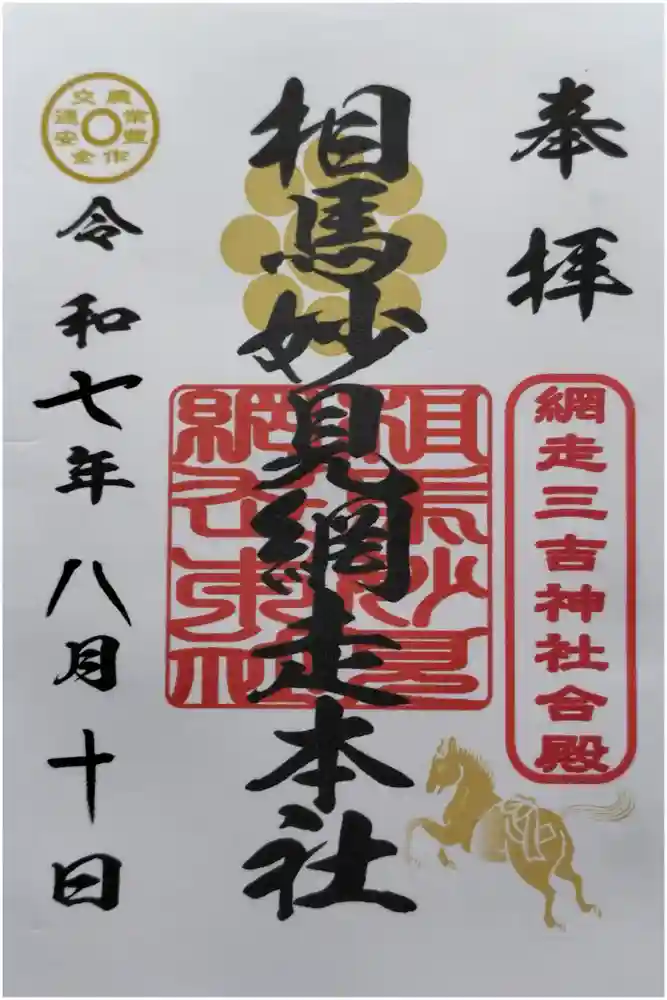 奉拝
網走三吉神社合殿
相馬妙見網走本社
相馬妙見
網走本社
農業豊作
交通安全
令和七年八月十日